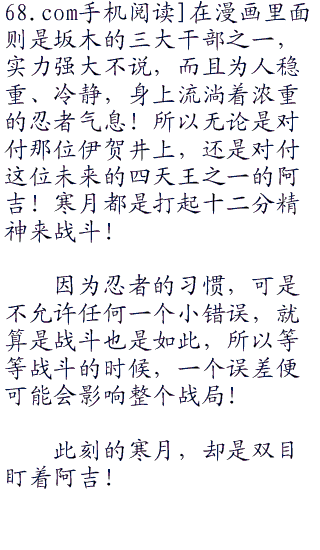 68.com手机阅读]在漫画里面
则是坂木的三大干部之一，
实力强大不说，而且为人稳
重、冷静，身上流淌着浓重
的忍者气息！所以无论是对
付那位伊贺井上，还是对付
这位未来的四天王之一的阿
吉！寒月都是打起十二分精
神来战斗！
因为忍者的习惯，可是
不允许任何一个小错误，就
算是战斗也是如此，所以等
等战斗的时候，一个误差便
可能会影响整个战局！
此刻的寒月，却是双目
盯着阿吉！